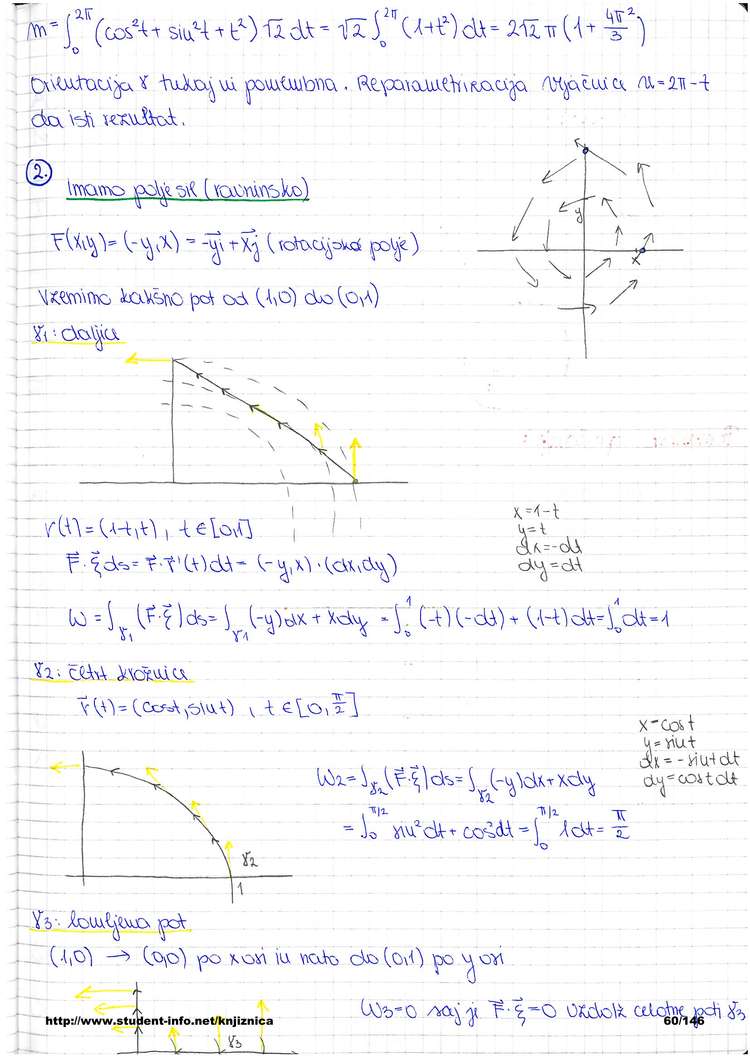 m = ∫₀^2π (cos²t + sin²t + t²) √2 dt = √2 ∫₀^2π (1+t²) dt = 2√2 π (1 + 4π²/3)
Orientacija γ tukaj ni pomembna. Reparametrizacija vijačnica u=2π-t
da isti rezultat.
2.
Imamo polje sil (ravninsko)
F(x,y) = (-y,x) = -yi⃗ + xj⃗ (rotacijsko polje)
y
x
Vzemimo kakšno pot od (1,0) do (0,1)
γ₁: daljica
r(t) = (1-t,t), t ∈ [0,1]
F⃗·ξ⃗ ds = F⃗·r⃗'(t) dt = (-y,x)·(dx,dy)
x = 1-t
y = t
dx = -dt
dy = dt
W = ∫_γ₁ (F⃗·ξ⃗) ds = ∫_γ₁ (-y) dx + x dy = ∫₀¹ (-t)(-dt) + (1-t) dt = ∫₀¹ dt = 1
γ₂: četrt krožnice
r⃗(t) = (cost, sint), t ∈ [0, π/2]
x = cost
y = sint
dx = -sint dt
dy = cost dt
W₂ = ∫_γ₂ (F⃗·ξ⃗) ds = ∫_γ₂ (-y) dx + x dy
= ∫₀^π/2 sin²dt + cos²dt = ∫₀^π/2 1dt = π/2
γ₂
1
γ₃: lomljena pot
(1,0) → (0,0) po x osi in nato do (0,1) po y osi
W₃=0 saj je F⃗·ξ⃗=0 vzdolž celotne poti γ₃
γ₃
http://www.student-info.net/knjiznica
60/146